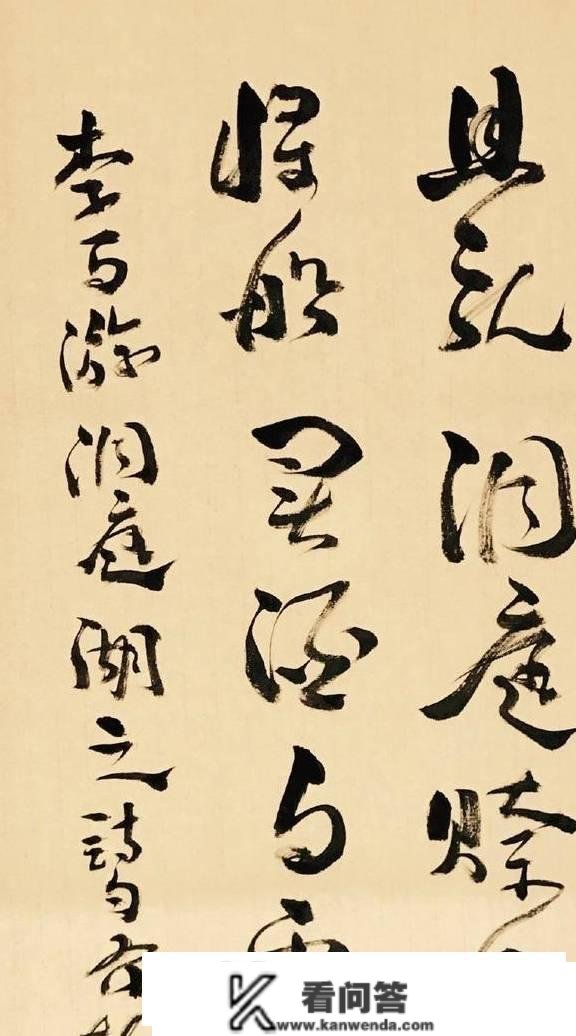 且就洞庭賒
將船買酒白
李白游洞庭湖之詩句
看问答
www.kanwenda.com